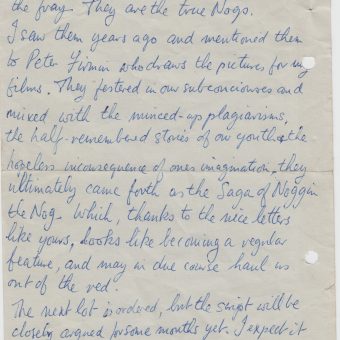 the fray. They are the true Nogs.
I saw them years ago and mentioned them
to Peter Firman who draws the pictures for my
films. They festered in our subconciouses and
mixed with the minced-up plagiarisms,
the half-remembered stories of our youth & the
hopeless inconsequence of ones imagination. they
ultimately came forth as the Saga of Noggin
the Nog. Which, thanks to the nice letters
like yours, looks like becoming a regular
feature, and may in due course haul us
out of the red.
The next lot is ordered, but the script will be
closely argued for some months yet. I expect it